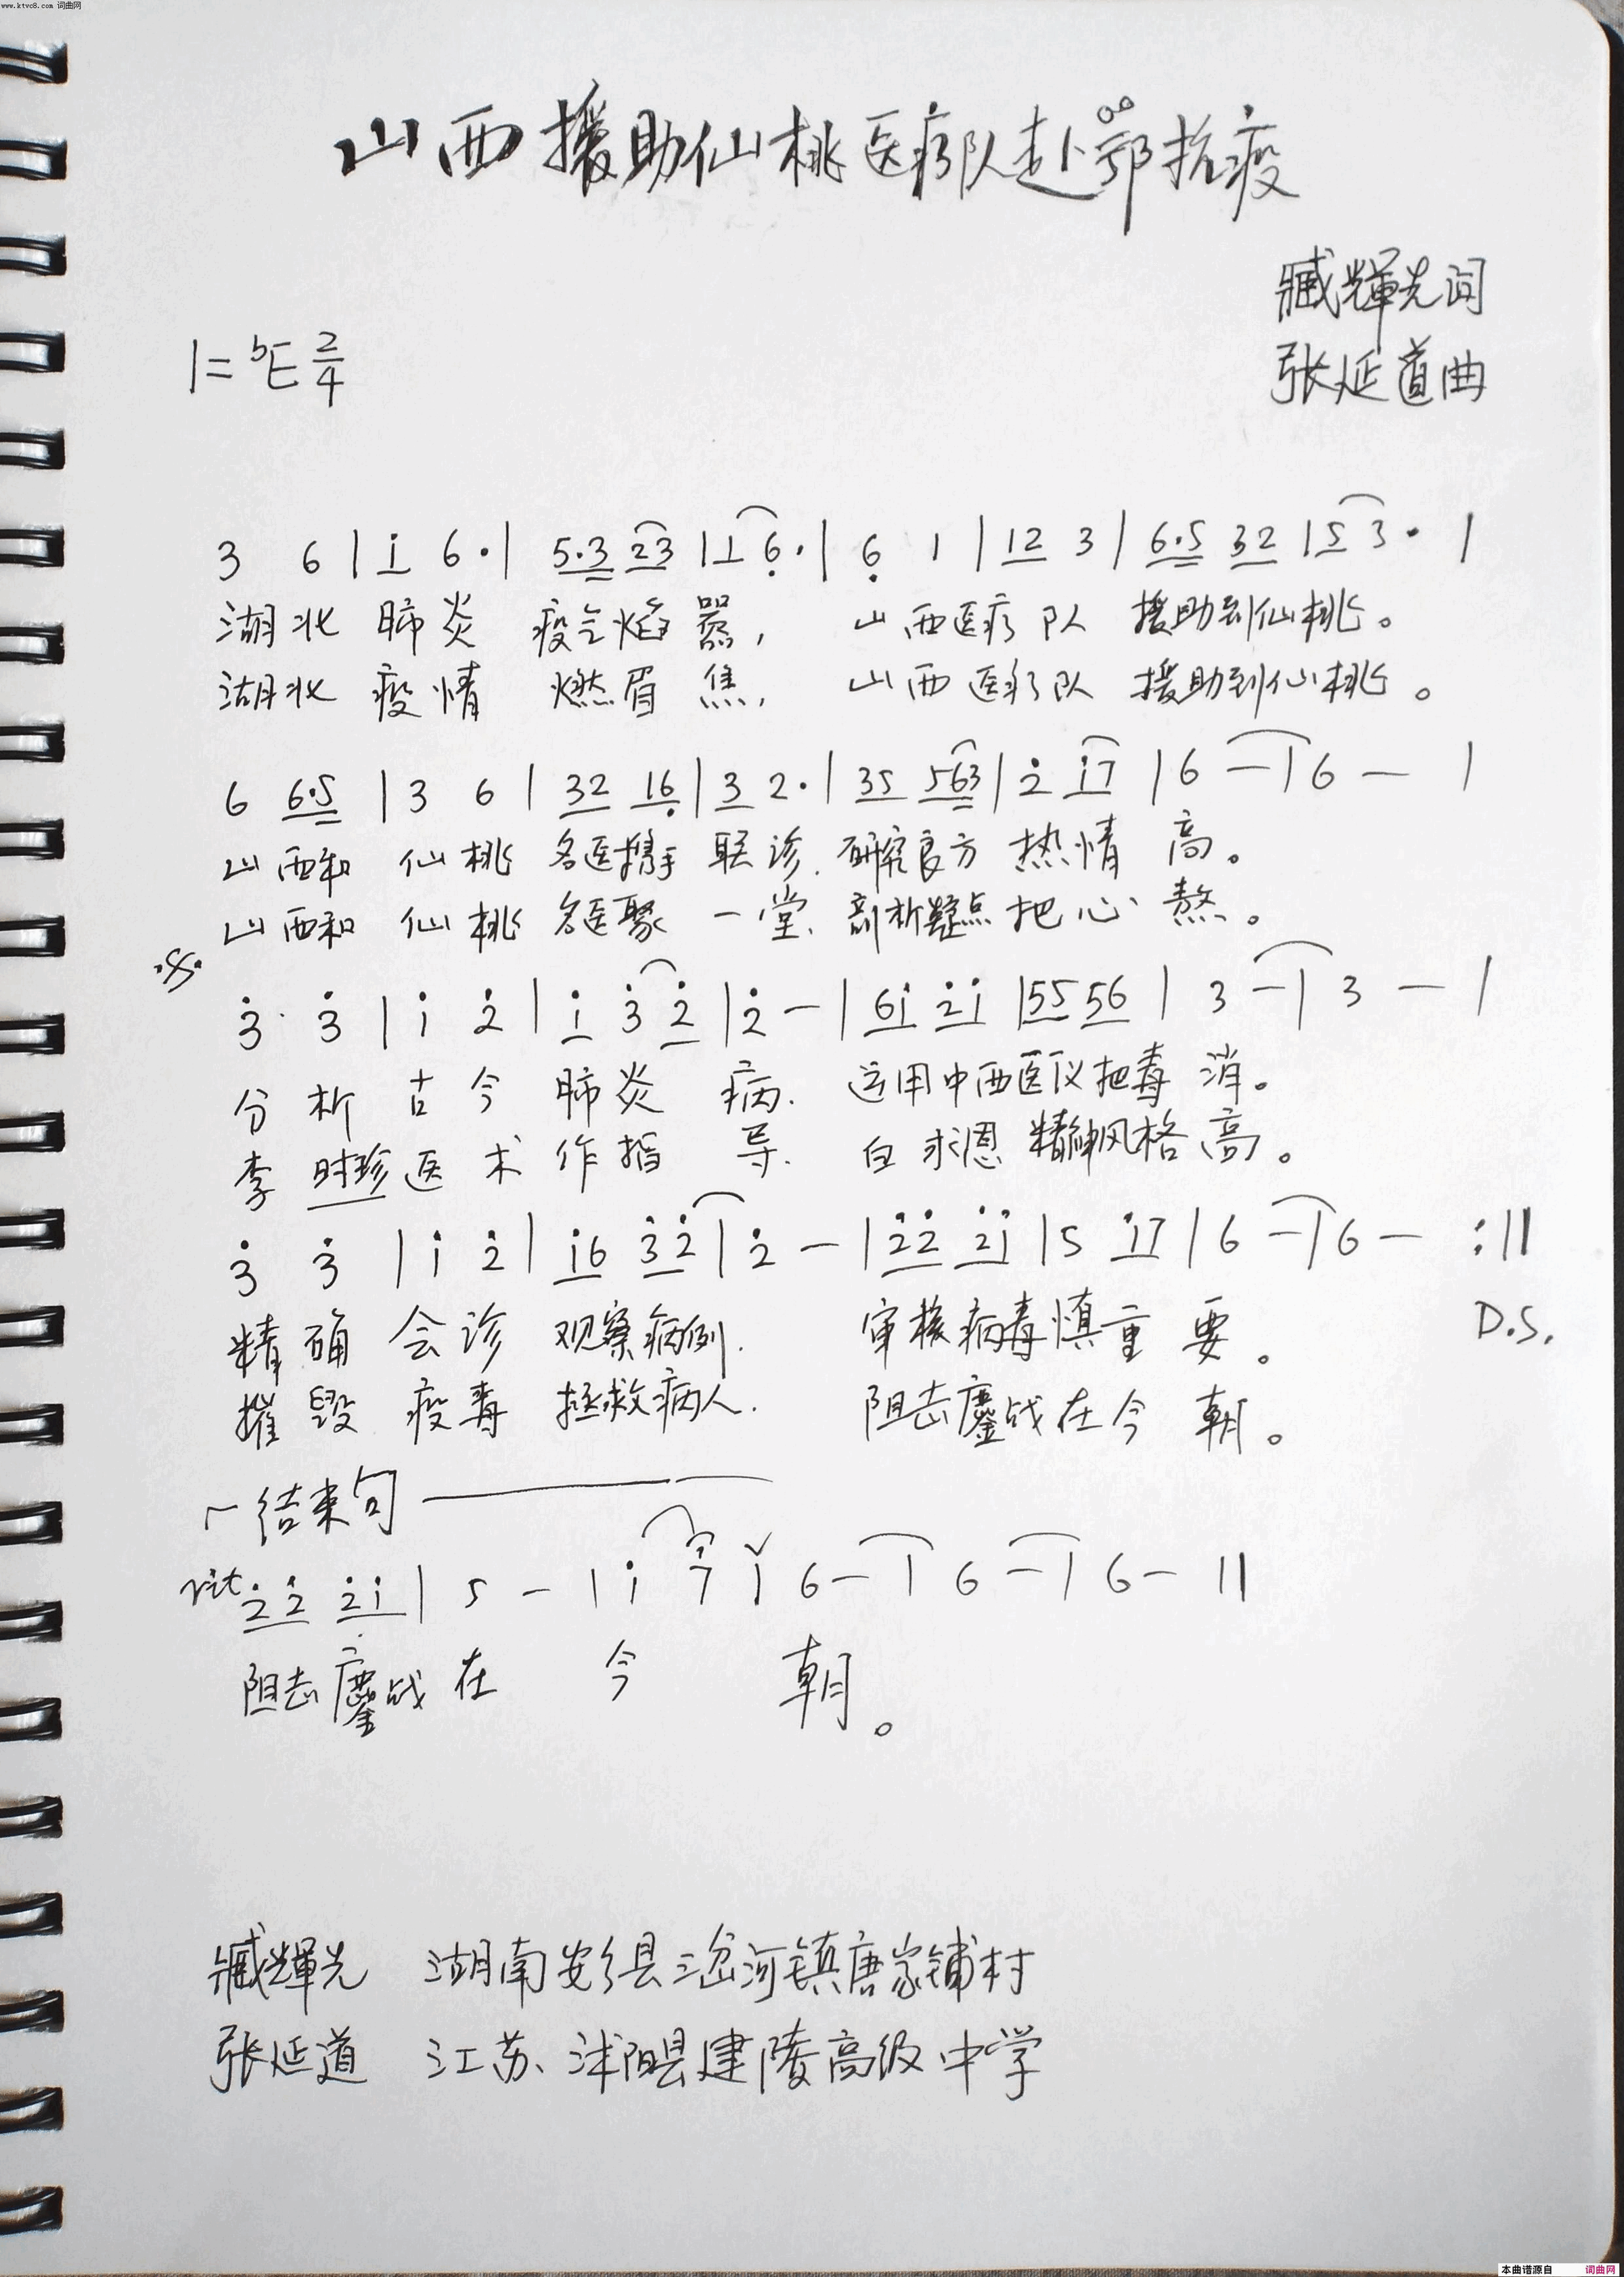 www.ktvc8.com 词曲网
山西援助仙桃医疗队赴鄂抗疫
臧輝光词
1=bE 2/4
张延道曲
3 6 | i 6· | 5·3 23 | 1 6· | 6 1 | 12 3 | 6·5 32 | 5 3· |
湖北 肺炎 疫气焰嚣, 山西医疗队 援助到仙桃。
湖北 疫情 燃眉焦, 山西医疗队 援助到仙桃。
6 6·5 | 3 6 | 32 16 | 3 2· | 35 563 | 2 i7 | 6 — | 6 — |
山西和 仙桃 名医携手 联诊. 研究良方 热情 高。
山西和 仙桃 名医聚 一堂、剖析疑点 把心 熬。
3 3 | i 2 | i 3 2 | 2 — | 6i 2i | 55 56 | 3 — | 3 — |
分析 古今 肺炎 病. 运用中西医仪把毒 消。
李时珍医术 作指 导. 白求恩 精神风格 高。
3 3 | i 2 | i6 32 | 2 — | 22 2i | 5 i7 | 6 — | 6 — :||
精确 会诊 观察病例. 审核病毒慎重 要。 D.S.
摧毁 疫毒 拯救病人. 阻击鏖战在今 朝。
结束句
rit 22 2i | 5 — | i 7 | 6 — | 6 — | 6 — ||
阻击鏖战 在 今 朝。
臧輝光 湖南安乡县三岔河镇唐家铺村
张延道 江苏、沭阳县建陵高级中学
本曲谱源自 词曲网